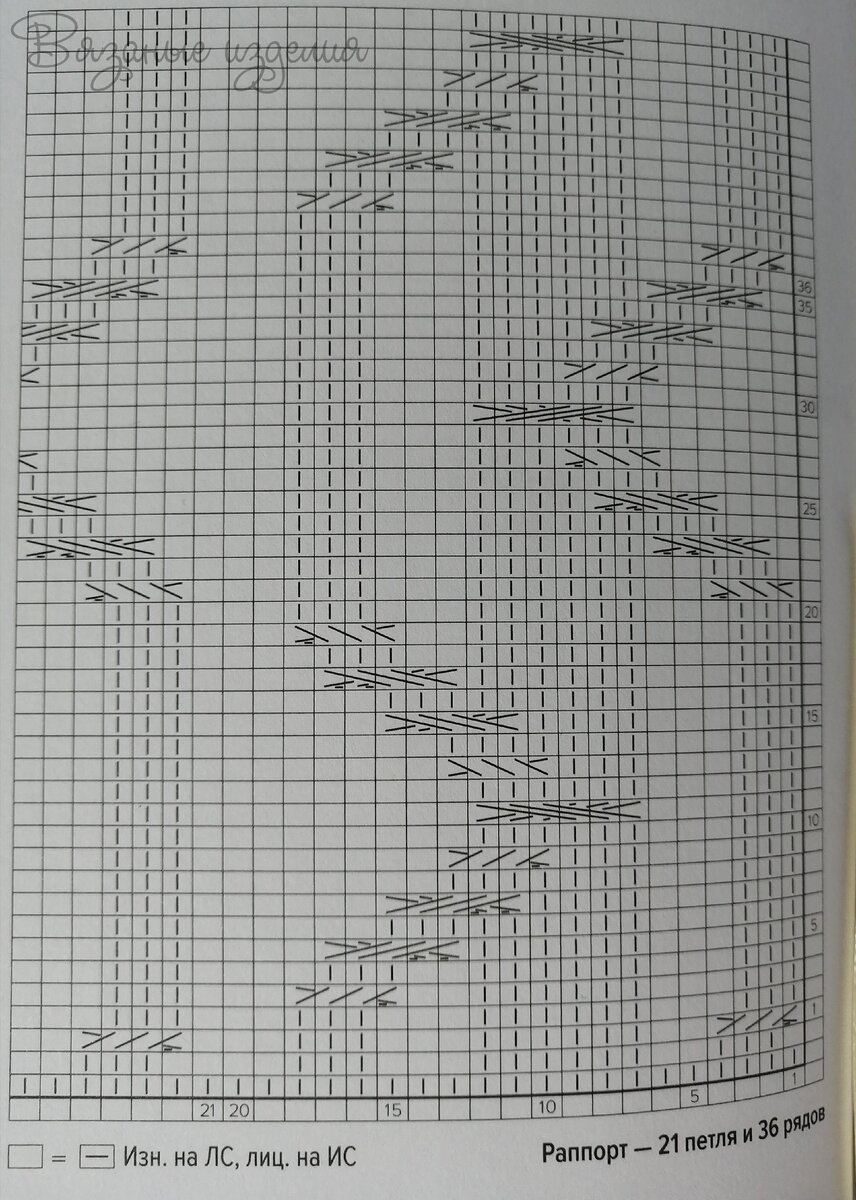 Вязаные изделия
36
35
30
25
20
15
10
5
1
21 20 15 10 5 1
= Изн. на ЛС, лиц. на ИС
Раппорт — 21 петля и 36 рядов